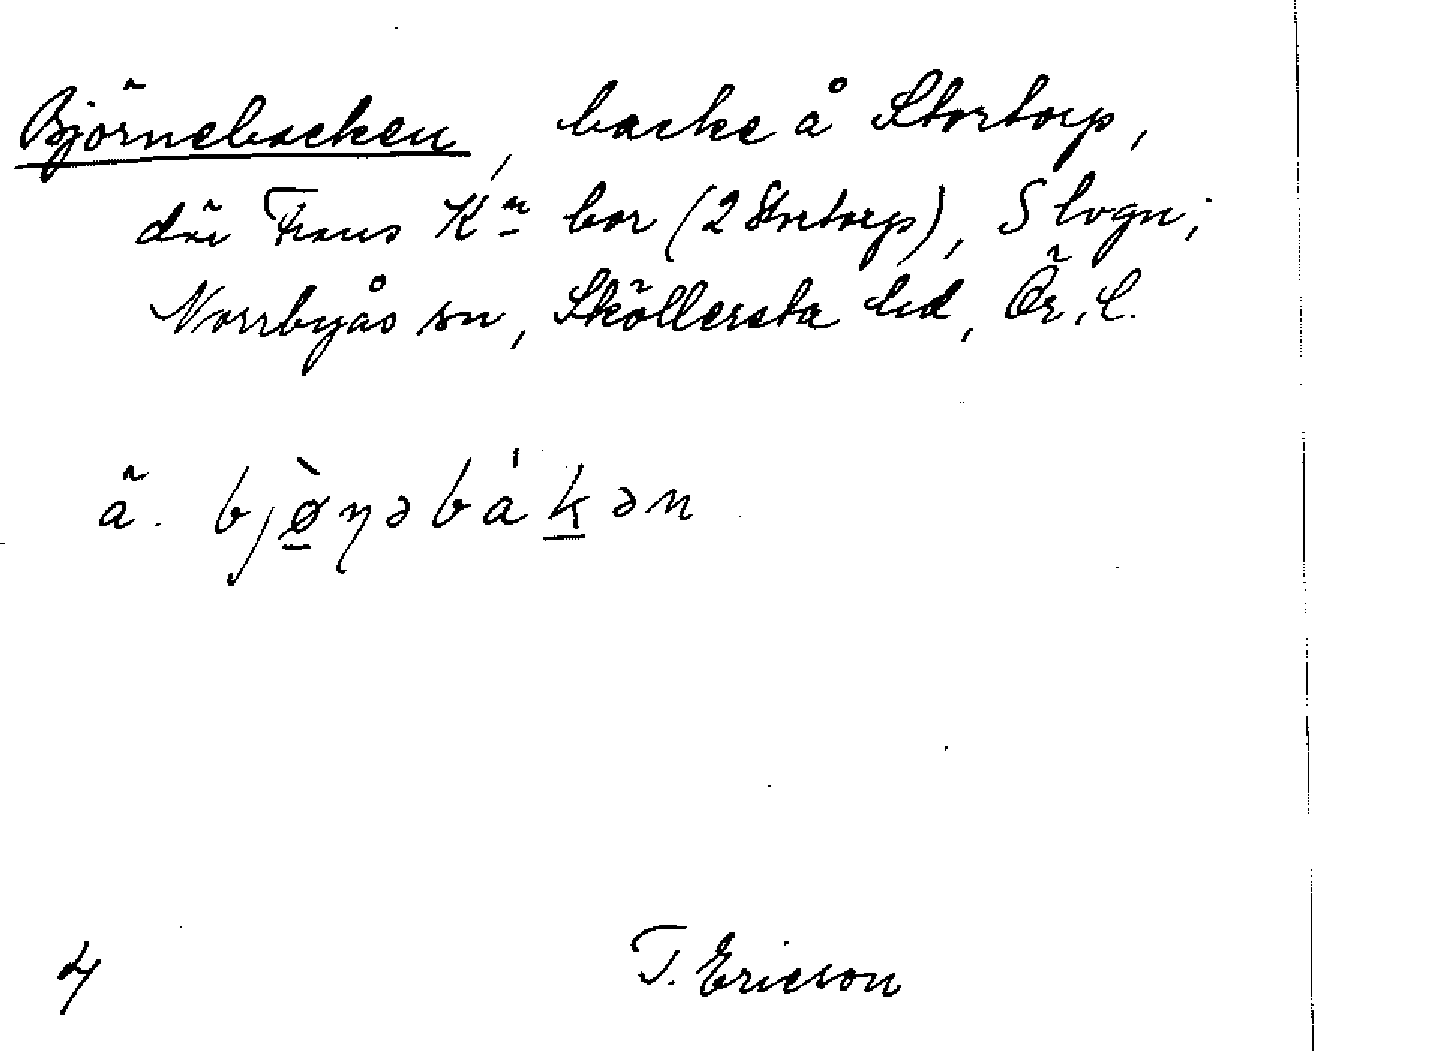 Björnebacken, backe å Stortorp,
där Frans Kn bor (2 Stortorp), S lvgn;
Norrbyås sn, Sköllersta hd, Ör. l.
ä. bjø̀ṇəbákən
4 T. Ericson